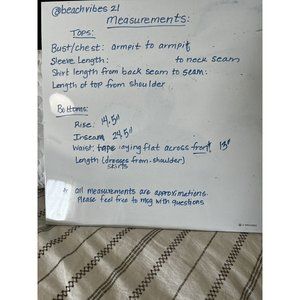 @beachvibes21
Measurements:
Tops:
Bust/chest: armpit to armpit
Sleeve Length: to neck seam
Shirt length from back seam to seam:
Length of top from shoulder
Bottoms:
Rise: 14.5"
Inseam 24.5"
Waist: tape laying flat across front 13"
Length (dresses from shoulder)
skirts
* all measurements are approximations.
Please feel free to msg with questions